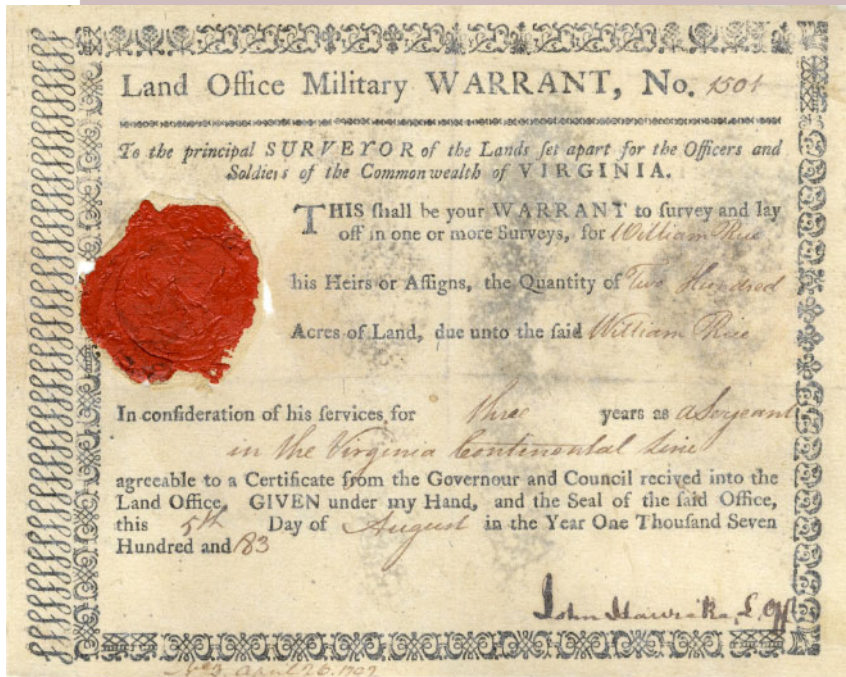 Land Office Military WARRANT, No. 1501
To the principal SURVEYOR of the Lands ſet apart for the Officers and
Soldiers of the Commonwealth of VIRGINIA.
THIS ſhall be your WARRANT to survey and lay
off in one or more Surveys, for William Rice
his Heirs or Aſſigns, the Quantity of Two Hundred
Acres of Land, due unto the ſaid William Rice
In conſideration of his ſervices for three years as a Sergeant
in the Virginia Continental line
agreeable to a Certificate from the Governour and Council recived into the
Land Office. GIVEN under my Hand, and the Seal of the ſaid Office,
this 5th Day of August in the Year One Thouſand Seven
Hundred and 83
John L. Off
April 26.